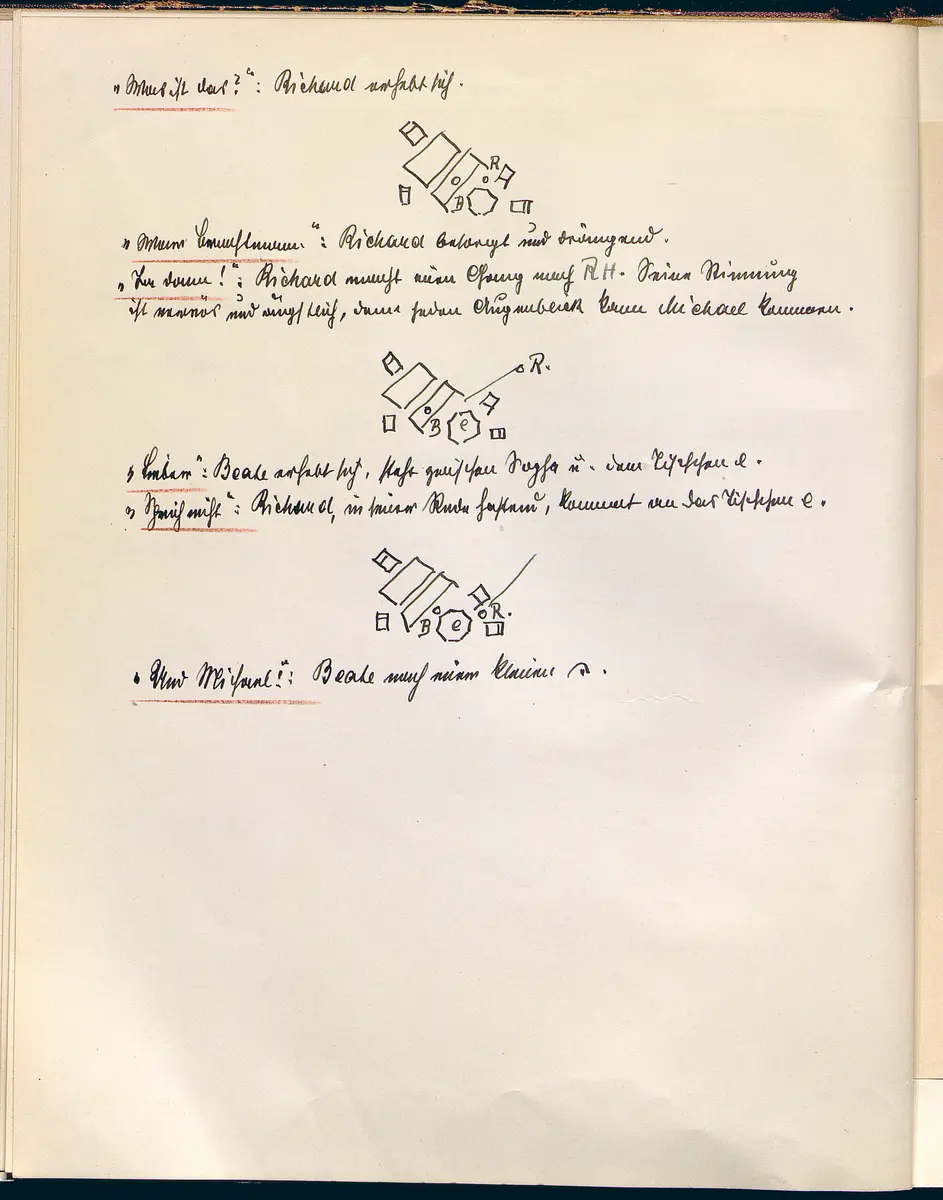 „Was ist das?“: Richard erhebt sich.
R
B
„Mein“: Richard besorgt und drängend.
„Ja dann!“: Richard macht einen Gang nach RH. Seine Stimmung
ist nervös und ängstlich, denn jeden Augenblick kann Michael kommen.
R.
B e
„Lieber“: Beate erhebt sich, steht zwischen Sopha u. dem Tischchen e.
„Sprich nicht“: Richard, in seiner Rede hastend, kommt an das Tischchen e.
R.
B e
„Und Michael?“: Beate nach einer kleinen